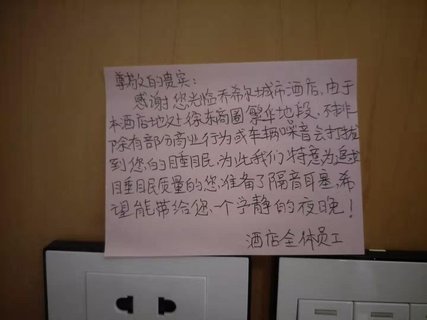 尊敬的贵宾：
感谢您光临乔希尔城市酒店，由于
本酒店地处徐东商圈繁华地段，不排
除有部份商业行为或车辆噪音会打扰
到您的睡眠，为此我们特意为追求
睡眠质量的您，准备了隔音耳塞，希
望能带给您一个宁静的夜晚！
酒店全体员工